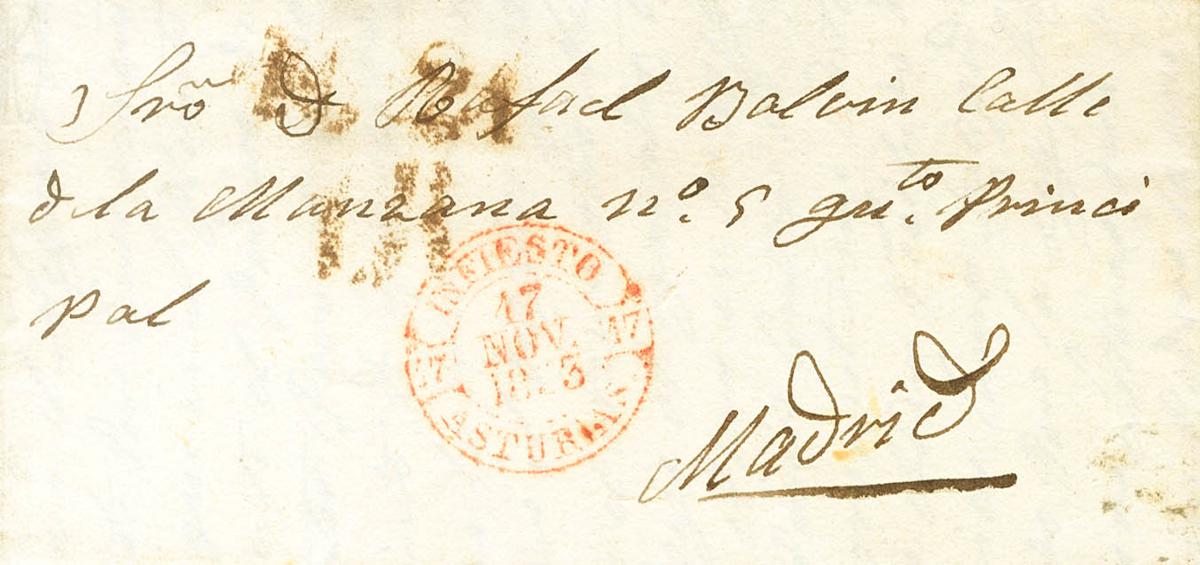 Srõ D Rafael Balvin Calle
de la Manzana nº. 5 gu.to Princi
pal
INFIESTO
17
NOV.
1853
17 17
ASTURIAS
Madrid